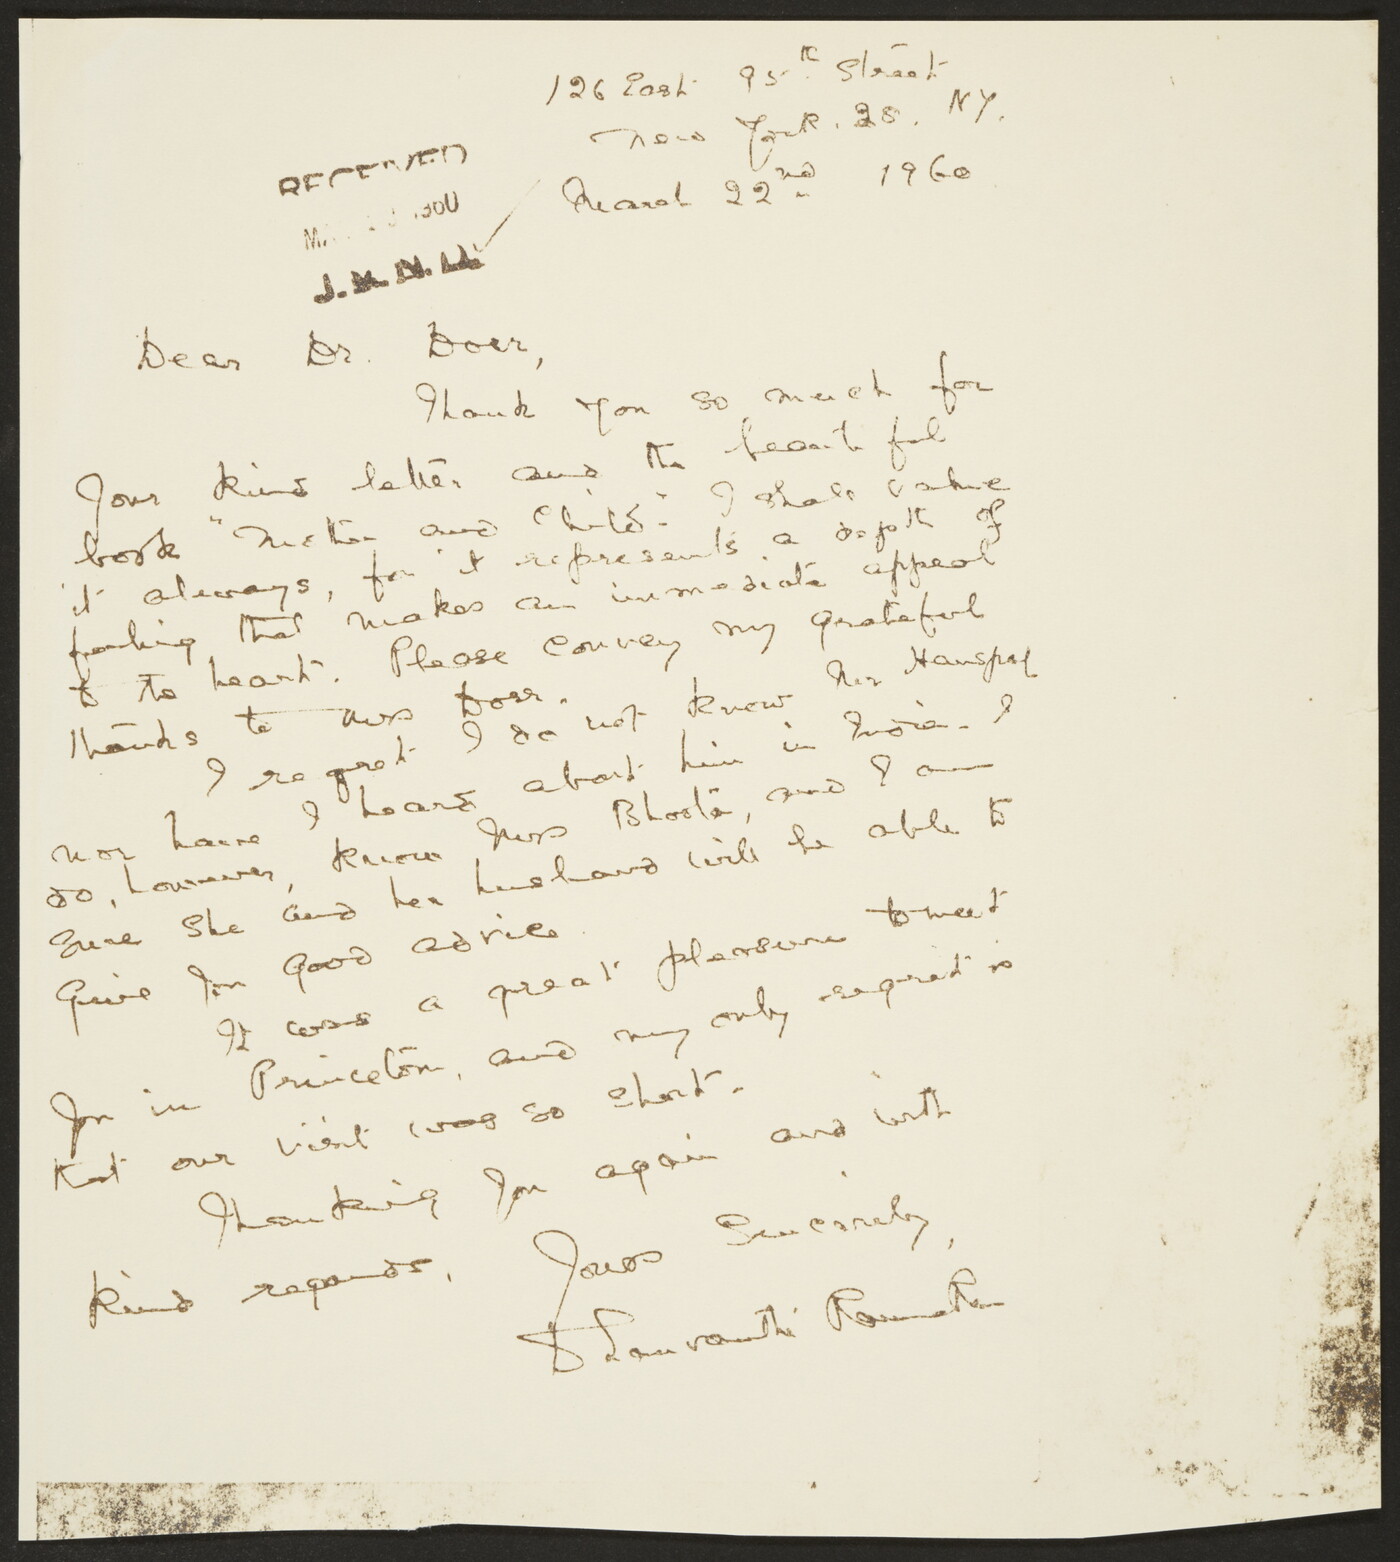 126 East 95th Street
New York. 28. NY.
March 22nd 1960
RECEIVED
J.
Dear Dr. Doer,
Thank you so much for
your kind letter and the beautiful
book "Mother and Child." I shall value
it always, for it represents a depth of
feeling that makes an immediate appeal
to the heart. Please convey my grateful
thanks to Mrs Doer.
I regret I do not know Mr
nor have I heard about him in India. I
do, however, know Mrs, and I am
sure she and her husband will be able to
give you good advice.
It was a great pleasure to meet
you in Princeton, and my only regret is
that our visit was so short.
Thanking you again and with
kind regards,
Yours Sincerely,